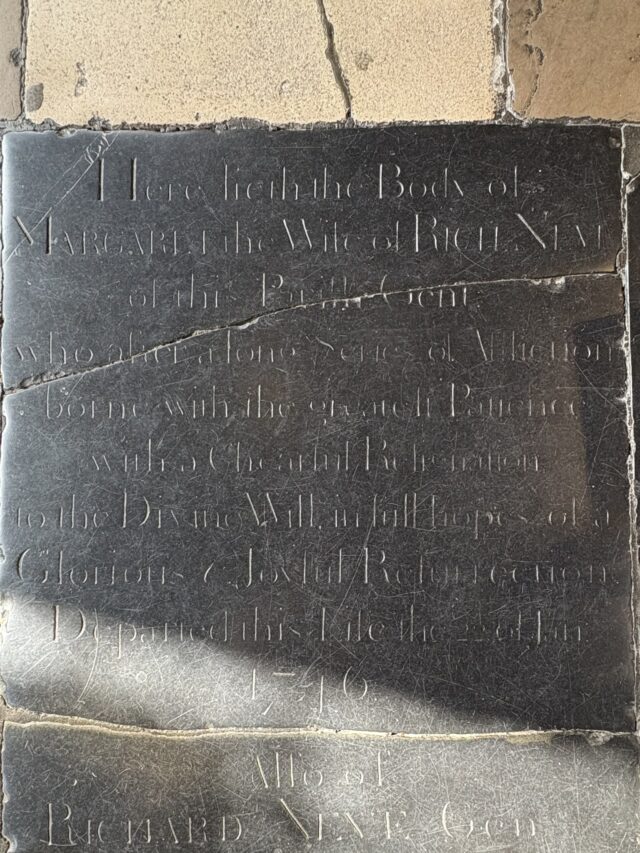 Here lieth the Body of
MARGARET the Wife of RICH. NEVE
of this Parish Gent.
who after a long Series of Affliction
borne with the greatest Patience
with a Chearful Resignation
to the Divine Will, in full hopes of a
Glorious & Joyful Resurrection,
Departed this Life the 22 of Jan.
1746.
Also of
RICHARD NEVE Gen